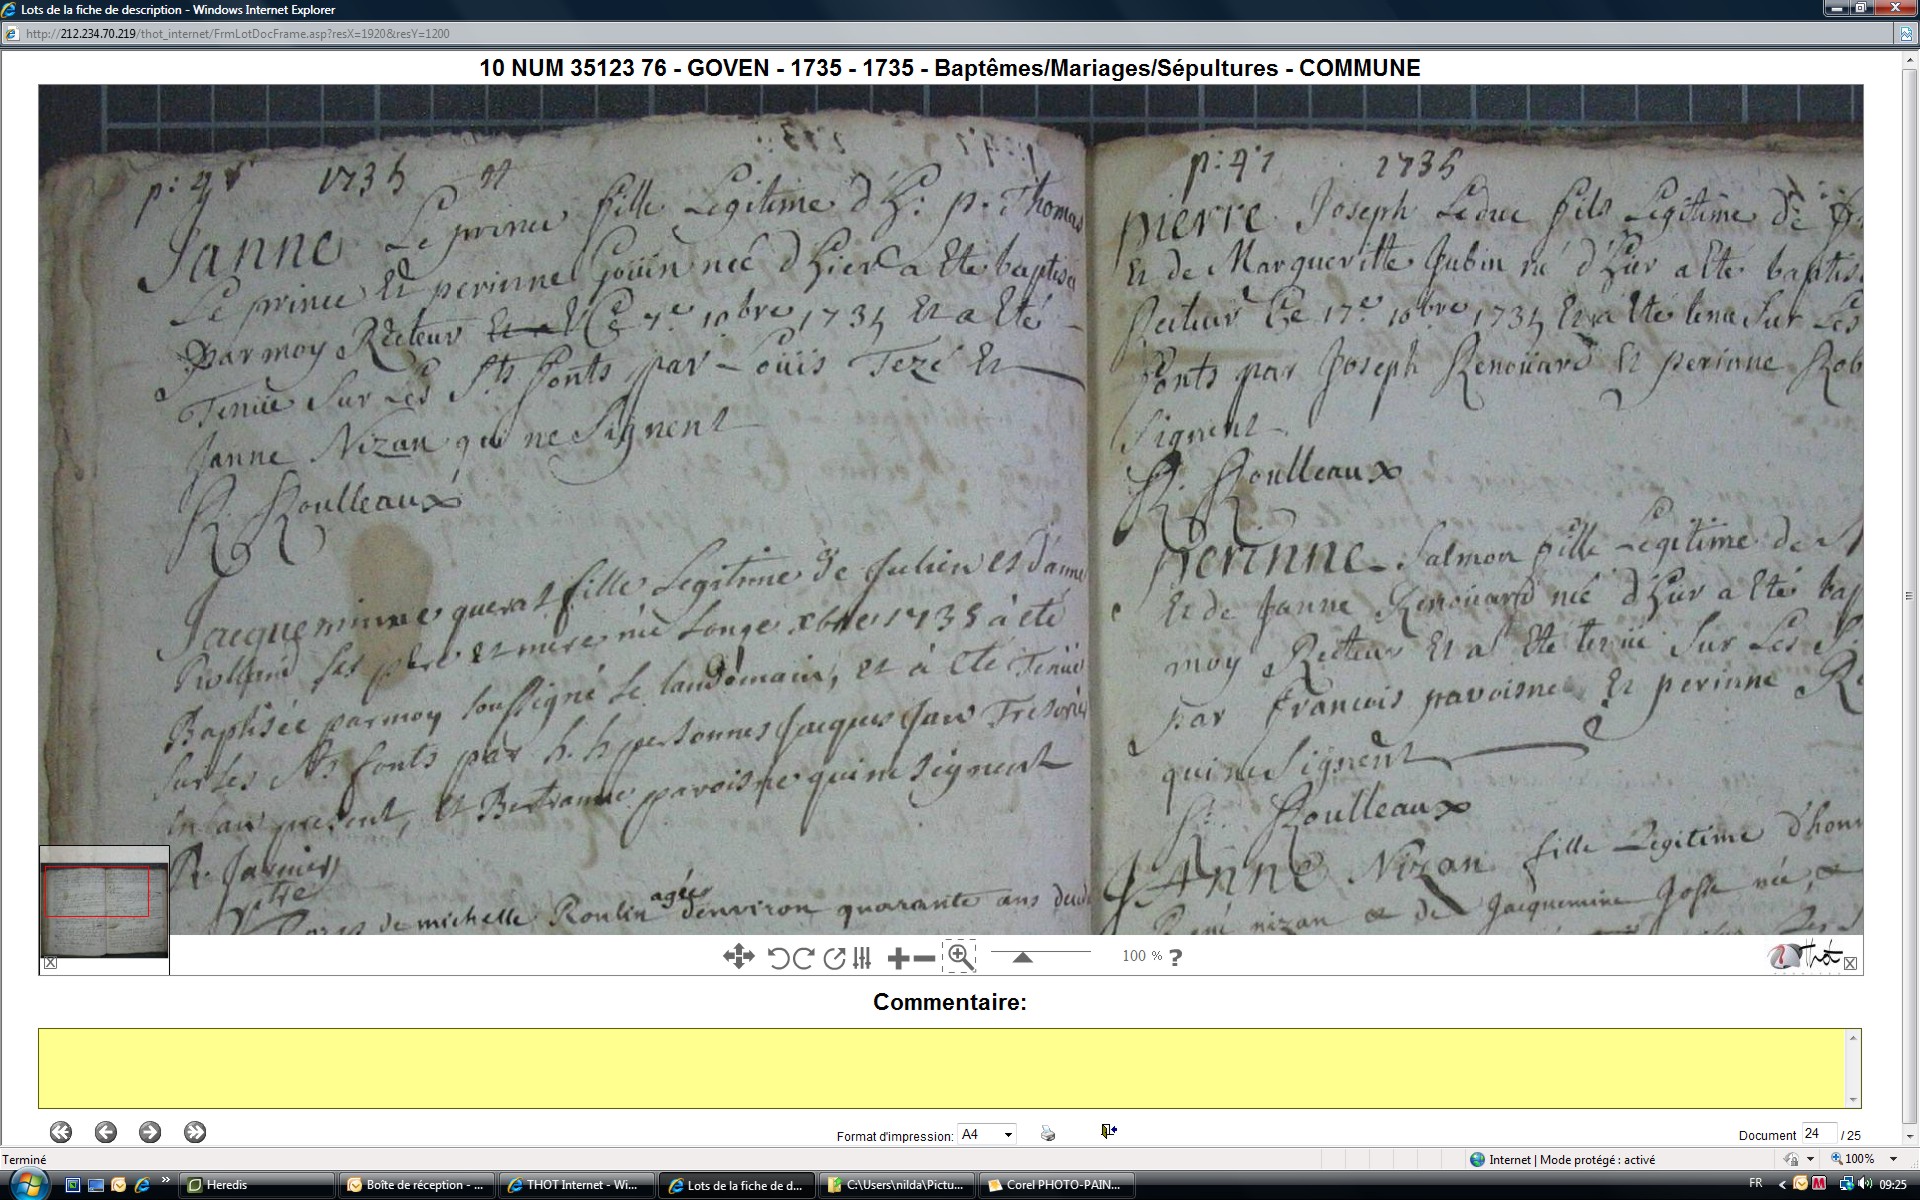 Lots de la fiche de description - Windows Internet Explorer
http://212.234.70.219/thot_internet/FrmLotDocFrame.asp?resX=1920&resY=1200
10 NUM 35123 76 - GOVEN - 1735 - 1735 - Baptêmes/Mariages/Sépultures - COMMUNE
1735
Janne Le prince fille Legitime d'h: p. Thomas
Le prince Et perinne Goüin neé d'hier a Eté baptisé
par moy Recteur Ce 7e 10bre 1735 Et a Eté
Tenüe Sur Les Sts fonts par Loüis Tezé Et
Janne Nizan qui ne Signent
R. Roulleaux
Jacqueminne querat fille Legitime de Julien et d'anne
Rolland ses pere et mere née Lonze xbre 1735 à eté
Baptisée par moy soussigné le landomain, et à eté Tenüe
sur les Sts fonts par h. h personnes Jacques Jan Tresorier
en an present, et Bertranne pavoisne qui ne signent
R. Jarnier
ptre
Corps de michelle Roulin agée d'environ quarante ans
p: 47 1735
pierre Joseph Leduc fils Legitime de
Et de Margueritte Jubin né d'hier a Eté baptisé
Recteur Ce 17e 10bre 1735 Et a Eté tenu Sur Les
fonts par Joseph Renoüard Et perinne Rob
Signent
R. Roulleaux
perinne Salmon fille Legitime de
Et de Janne Renoüard neé d'hier a Eté bap
moy Recteur Et a Eté tenüe Sur Les S
par francois pavoisne Et perinne Re
qui ne Signent
R. Roulleaux
JAnne Nizan fille Legitime d'hon
René nizan et de Jacquemine Josse née
100 % ?
Thot
Commentaire:
Format d'impression: A4
Document 24 / 25
Terminé
Internet | Mode protégé : activé
100%
Heredis
Boîte de réception - ...
THOT Internet - Wi...
Lots de la fiche de d...
C:\Users\nilda\Pictu...
Corel PHOTO-PAIN...
FR
09:25